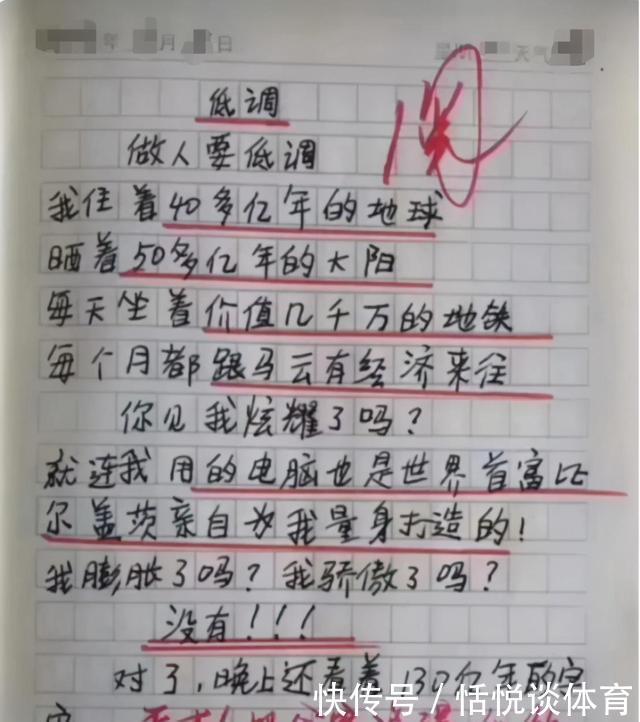 年 月 日 星期 天气
低调
做人要低调
我住着40多亿年的地球
晒着50多亿年的太阳
每天坐着价值几千万的地铁
每个月都跟马云有经济来往
你见我炫耀了吗？
就连我用的电脑也是世界首富比
尔盖茨亲自为我量身打造的！
我膨胀了吗？我骄傲了吗？
没有！！！
对了，晚上还看着130亿年的宇
宙
快传号／恬悦谈体育